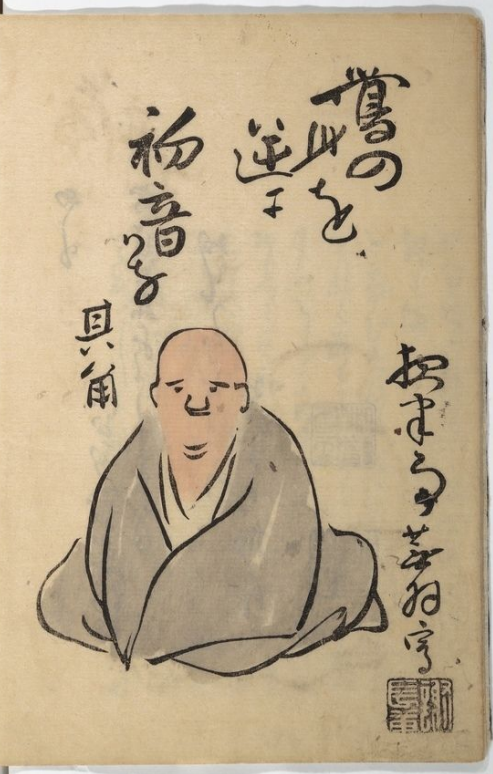 鶯の
身を
逆に
初音かな
其角
夜半亭蕪村寫